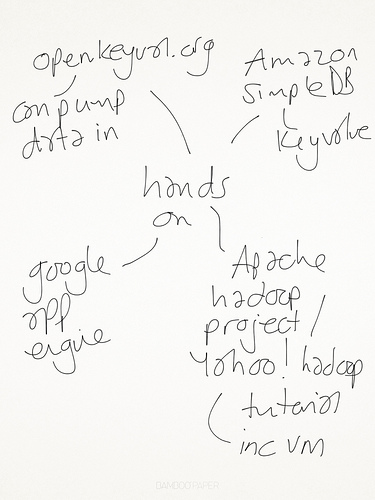 openkeyurl.org
can pump
data in
Amazon
SimpleDB
keyvalue
hands
on
google
app
engine
Apache
hadoop
project /
Yahoo! hadoop
tutorial
inc VM
BAMBOO PAPER